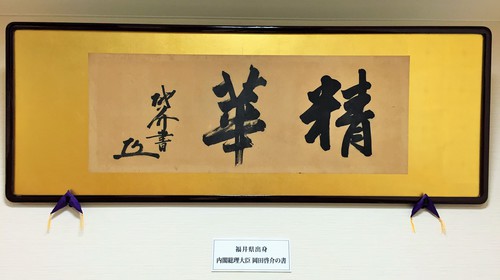 精華
啓介書
福井県出身
内閣総理大臣 岡田啓介の書